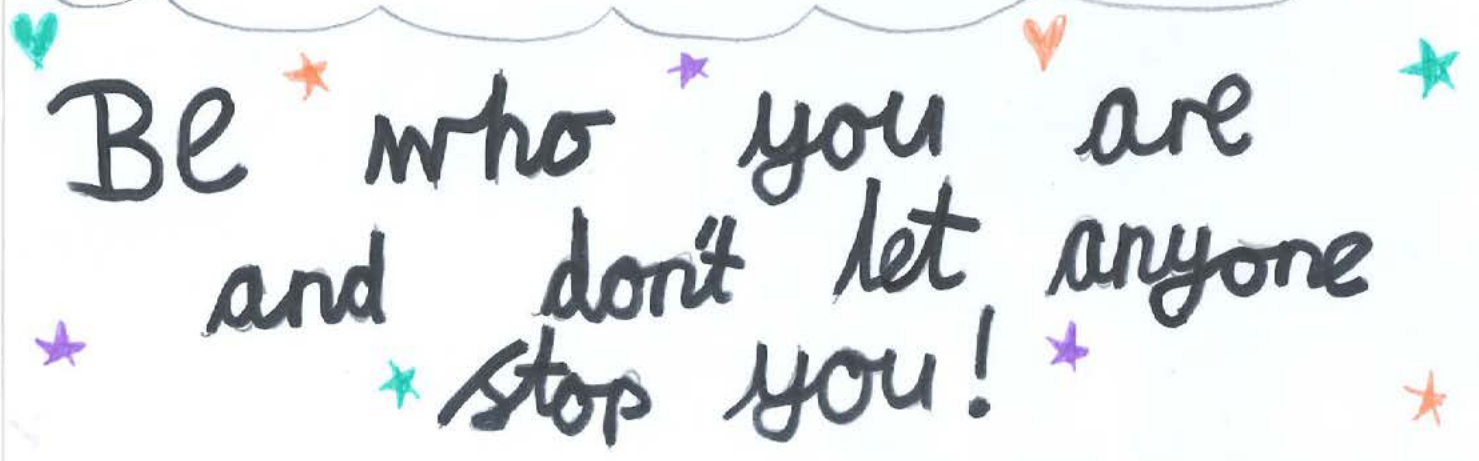 Be who you are
and don't let anyone
stop you!